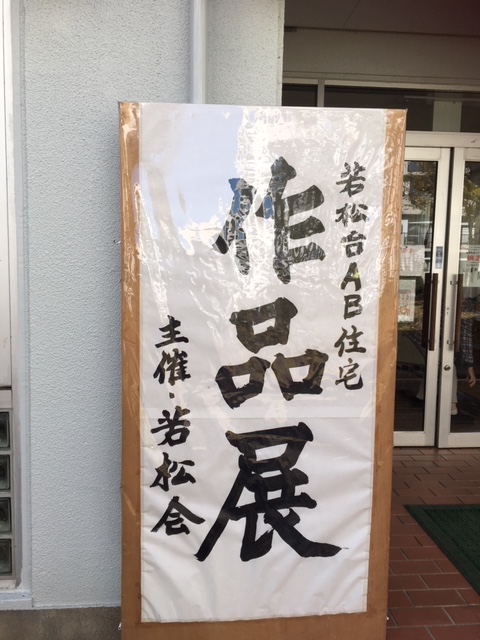 若松台AB住宅
作品展
主催・若松会